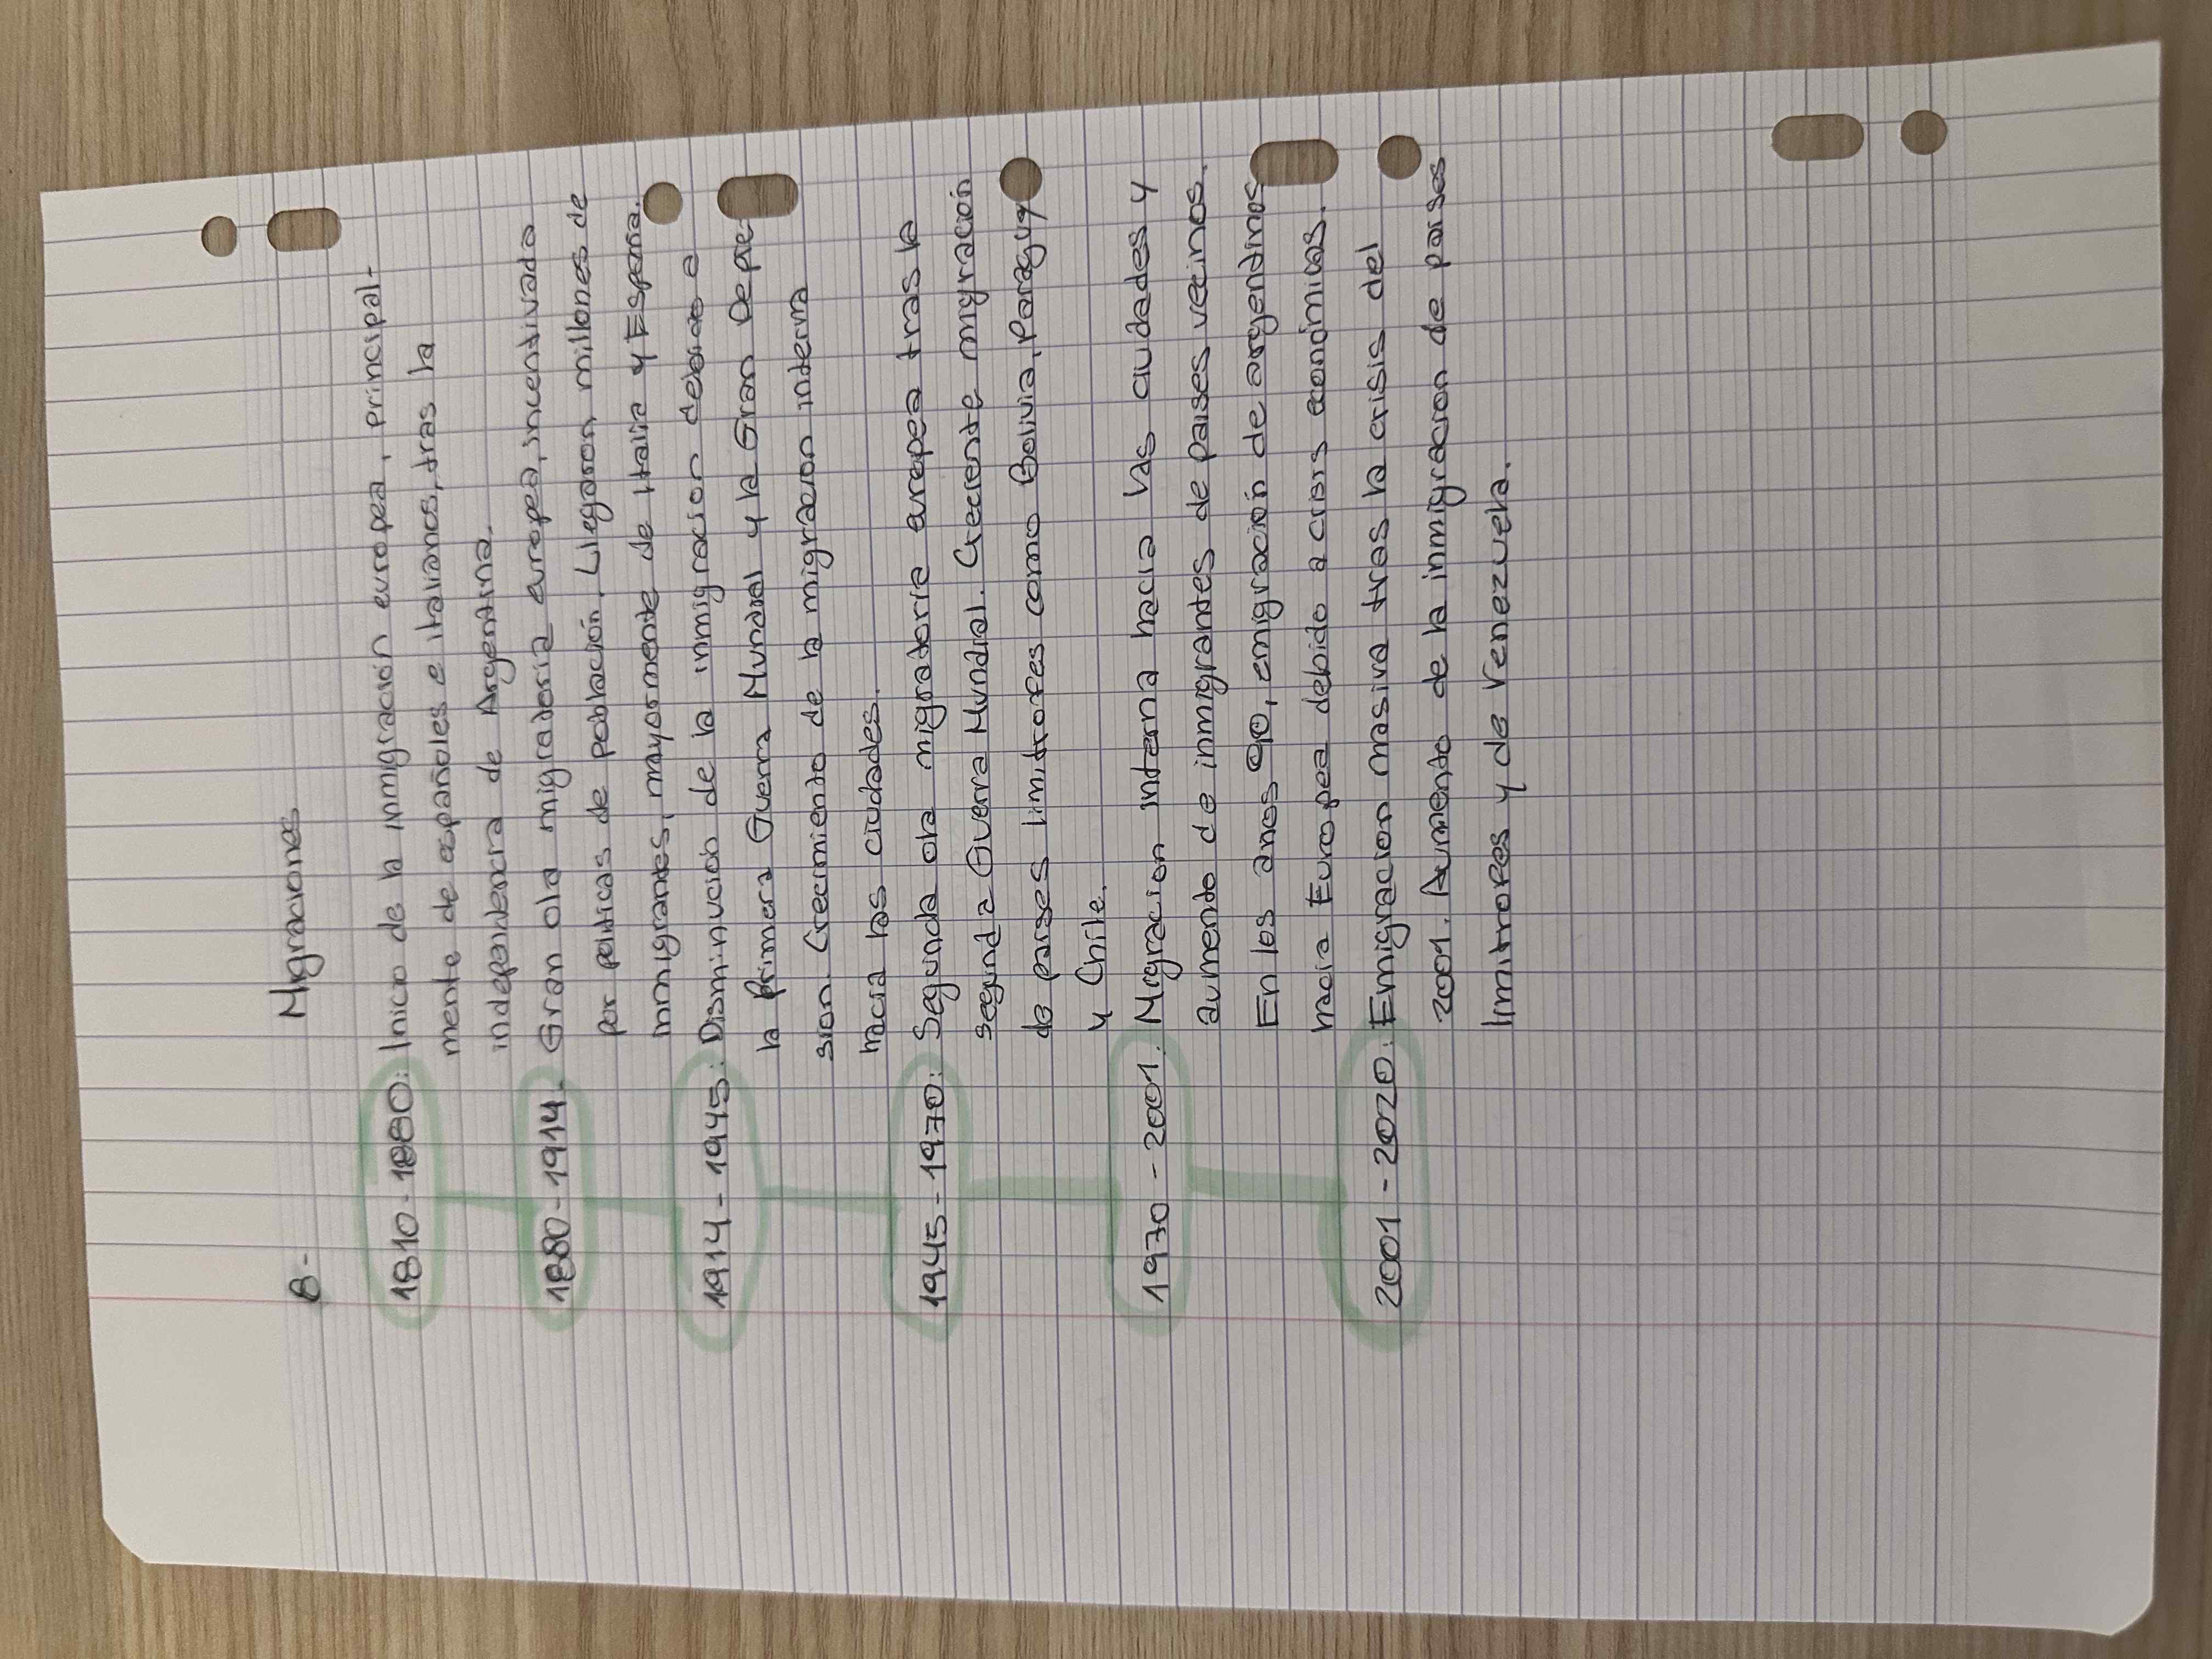 8-
Migraciones
1810-1880: Inicio de la inmigración europea, principal-
mente de españoles e italianos, tras la
independencia de Argentina.
1880-1914. Gran ola migratoria europea, incentivada
por politicas de población. Llegaron millones de
inmigrantes, mayormente de Italia y España.
1914-1945: Disminución de la inmigracion debido a
la Primera Guerra Mundial y la Gran Depre-
sion. Crecimiento de la migracion interna
hacia las ciudades.
1945-1970: Segunda ola migratoria europea tras la
segunda Guerra Mundial. Creciente migración
de paises limitrofes como Bolivia, Paraguay
y Chile.
1970-2001. Migracion interna hacia las ciudades y
aumento de inmigrantes de paises vecinos.
En los anos 90, emigración de argentinos
hacia Europea debido a crisis económicas.
2001-2020: Emigracion masiva tras la crisis del
2001. Aumento de la inmigracion de paises
limitrofes y de Venezuela.